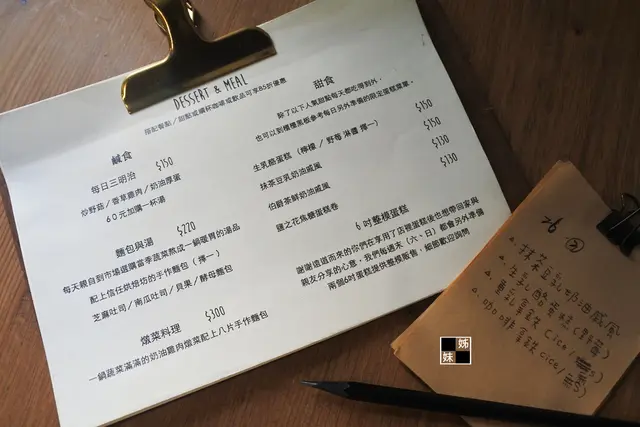 DESSERT & MEAL
搭配餐點／甜點或續杯咖啡或飲品可享85折優惠
鹹食
每日三明治 $150
炒野菇／香草雞肉／奶油厚蛋
60元加購一杯湯
麵包與湯 $220
每天親自到市場選購當季蔬菜熬成一鍋暖胃的湯品
配上信任烘焙坊的手作麵包（擇一）
芝麻吐司／南瓜吐司／貝果／酵母麵包
燉菜料理 $300
一鍋蔬菜滿滿的奶油雞肉燉菜配上八片手作麵包
甜食
除了以下人氣甜點每天都吃得到外，
也可以到櫃檯黑板參考每日另外準備的限定蛋糕菜單。
生乳酪蛋糕（檸檬／野莓 淋醬 擇一） $150
抹茶豆乳奶油戚風 $150
伯爵茶鮮奶油戚風 $130
鹽之花焦糖蛋糕卷 $130
6吋整模蛋糕
謝謝遠道而來的你們在享用了店裡蛋糕後也想帶回家與
親友分享的心意，我們每週末（六、日）都會另外準備
兩個6吋蛋糕提供整模販售，細節歡迎詢問
抹茶豆乳奶油戚風
生乳酪蛋糕(野莓)
(ice/
咖啡 (ice/
姊
妹